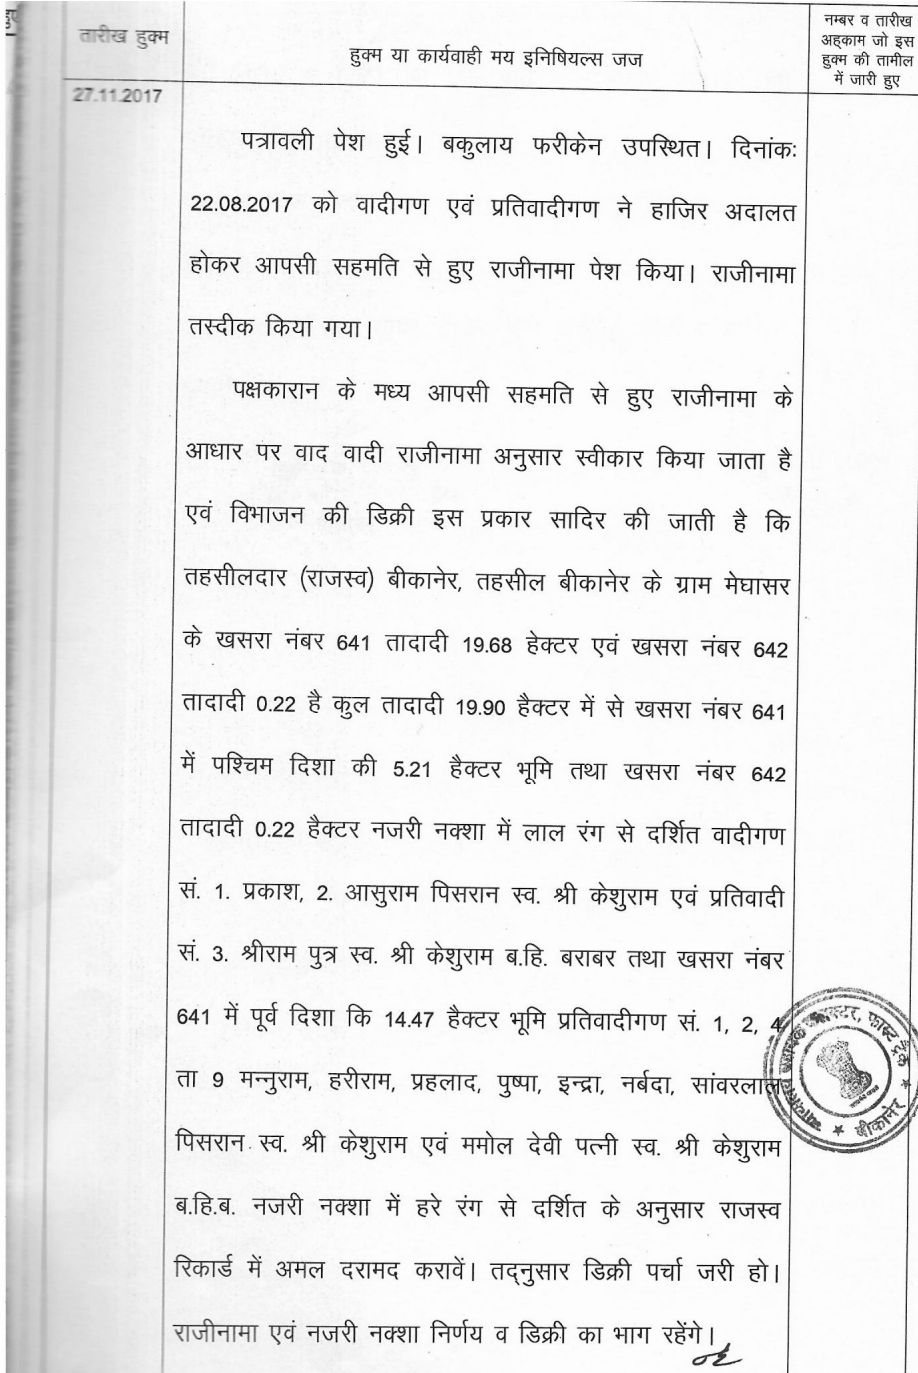 तारीख हुक्म
हुक्म या कार्यवाही मय इनिषियल्स जज
नम्बर व तारीख
अह्काम जो इस
हुक्म की तामील
में जारी हुए
27.11.2017
पत्रावली पेश हुई। बकुलाय फरीकेन उपस्थित। दिनांकः
22.08.2017 को वादीगण एवं प्रतिवादीगण ने हाजिर अदालत
होकर आपसी सहमति से हुए राजीनामा पेश किया। राजीनामा
तस्दीक किया गया।
पक्षकारान के मध्य आपसी सहमति से हुए राजीनामा के
आधार पर वाद वादी राजीनामा अनुसार स्वीकार किया जाता है
एवं विभाजन की डिक्री इस प्रकार सादिर की जाती है कि
तहसीलदार (राजस्व) बीकानेर, तहसील बीकानेर के ग्राम मेघासर
के खसरा नंबर 641 तादादी 19.68 हेक्टर एवं खसरा नंबर 642
तादादी 0.22 है कुल तादादी 19.90 हैक्टर में से खसरा नंबर 641
में पश्चिम दिशा की 5.21 हैक्टर भूमि तथा खसरा नंबर 642
तादादी 0.22 हैक्टर नजरी नक्शा में लाल रंग से दर्शित वादीगण
सं. 1. प्रकाश, 2. आसुराम पिसरान स्व. श्री केशुराम एवं प्रतिवादी
सं. 3. श्रीराम पुत्र स्व. श्री केशुराम ब.हि. बराबर तथा खसरा नंबर
641 में पूर्व दिशा कि 14.47 हैक्टर भूमि प्रतिवादीगण सं. 1, 2, 4
ता 9 मन्नुराम, हरीराम, प्रहलाद, पुष्पा, इन्द्रा, नर्बदा, सांवरलाल
पिसरान स्व. श्री केशुराम एवं ममोल देवी पत्नी स्व. श्री केशुराम
ब.हि.ब. नजरी नक्शा में हरे रंग से दर्शित के अनुसार राजस्व
रिकार्ड में अमल दरामद करावें। तद्नुसार डिक्री पर्चा जरी हो।
राजीनामा एवं नजरी नक्शा निर्णय व डिक्री का भाग रहेंगे।
फास्ट ट्रैक
बीकानेर